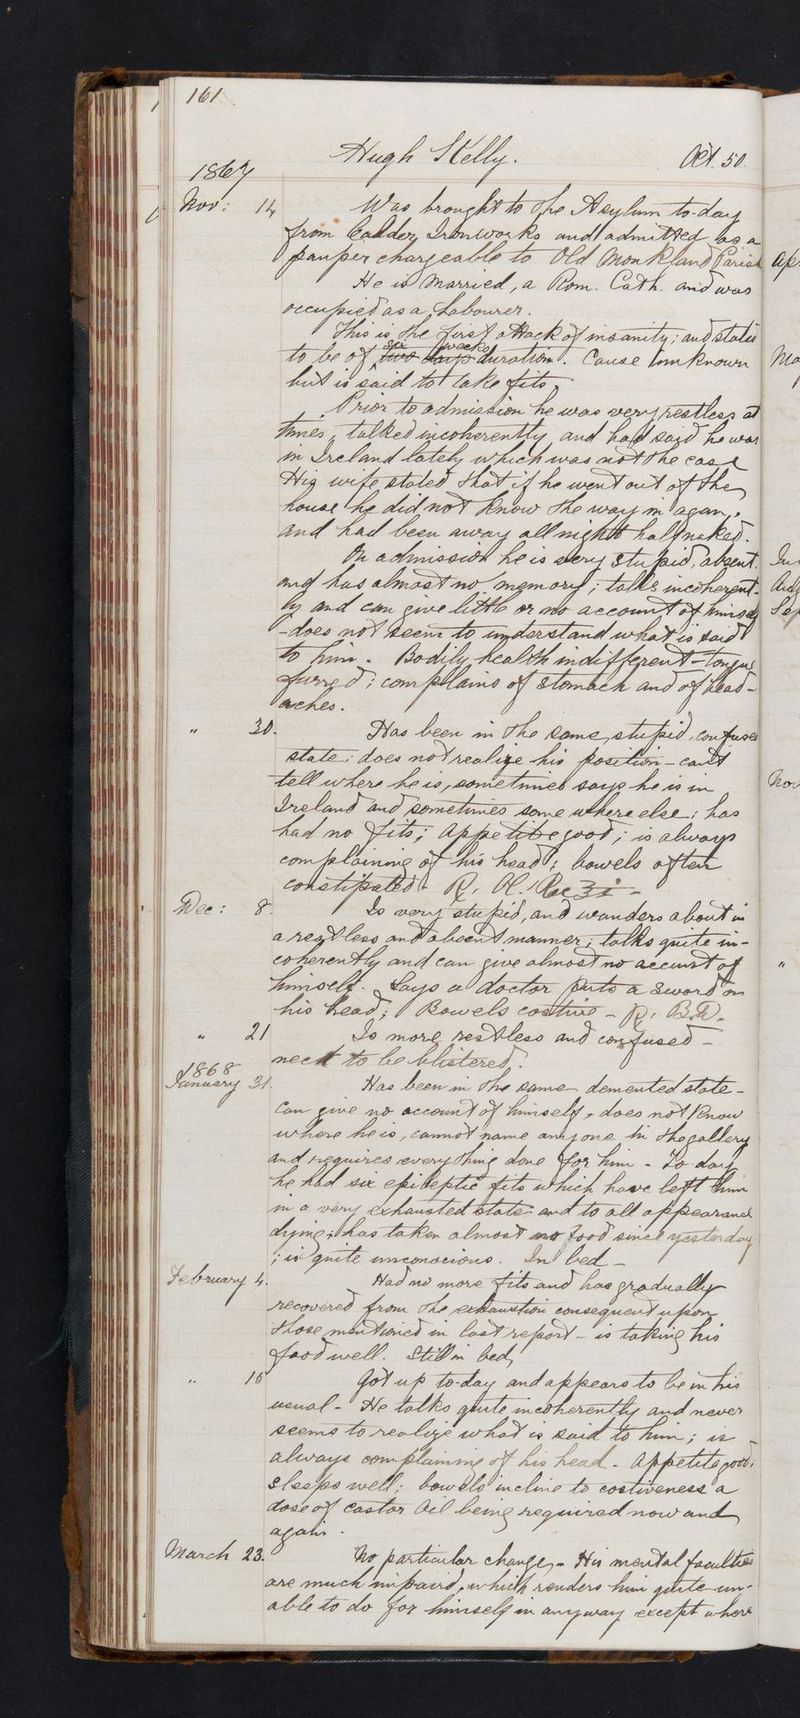 161
Hugh Kelly. Oct. 50.
1867
Nov: 14 Was brought to the Asylum to-day
from Calder Ironworks and admitted as a
pauper chargeable to Old Monkland Parish
He is Married, a Rom. Cath. and was
occupied as a Labourer.
This is the first attack of insanity; and stated
six weeks
to be of two days duration. Cause unknown
but is said to take fits.
Prior to admission he was very restless at
times, talked incoherently, and had said he was
in Ireland lately which was not the case
His wife stated that if he went out of the
house he did not know the way in again,
and had been away all night half naked.
On admission he is very stupid, absent,
and has almost no memory; talks incoherent-
ly and can give little or no account of himself
- does not seem to understand what is said
to him. Bodily health indifferent - tongue
furred; complains of stomach and of head-
aches.
" 30. Has been in the same stupid, confused
state; does not realize his position - can't
tell where he is, sometimes says he is in
Ireland and sometimes some where else; has
had no fits; appetite good; is always
complaining of his head; bowels often
constipated - R. Ol. Ric ℥i -
Dec: 8. Is very stupid, and wanders about in
a restless and absent manner; talks quite in-
coherently and can give almost no account of
himself. Says a doctor puts a sword in
his head; Bowels costive - R.
" 21 Is more restless and confused -
neck to be blistered.
1868
January 31. Has been in the same demented state -
can give no account of himself, does not know
where he is, cannot name anyone in the gallery
and requires everything done for him - To-day
he had six epileptic fits which have left him
in a very exhausted state and to all appearance
dying; has taken almost no food since yesterday
; is quite unconscious. In bed -
February 4. Had no more fits and has gradually
recovered from the exhaustion consequent upon
those mentioned in last report - is taking his
food well. Still in bed,
" 15 Got up to-day and appears to be in his
usual - He talks quite incoherently and never
seems to realize what is said to him; is
always complaining of his head - Appetite good,
sleeps well; bowels incline to costiveness a
dose of castor Oil being required now and
again.
March 23. No particular change - His mental faculties
are much impaired, which renders him quite un-
able to do for himself in anyway except where